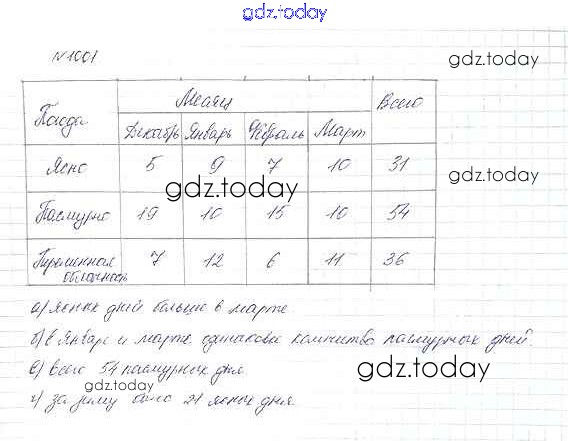 gdz.today
N1001
gdz.today
Погода Месяц Всего
Декабрь Январь Февраль Март
Ясно 5 9 7 10 31
gdz.today
gdz.today
Пасмурно 19 10 15 10 54
Переменная облачность 7 12 6 11 36
а) ясных дней больше в марте.
б) в январе и марте одинаковое количество пасмурных дней.
в) всего 54 пасмурных дня
gdz.today
gdz.today
г) за зиму было 21 ясных дня.